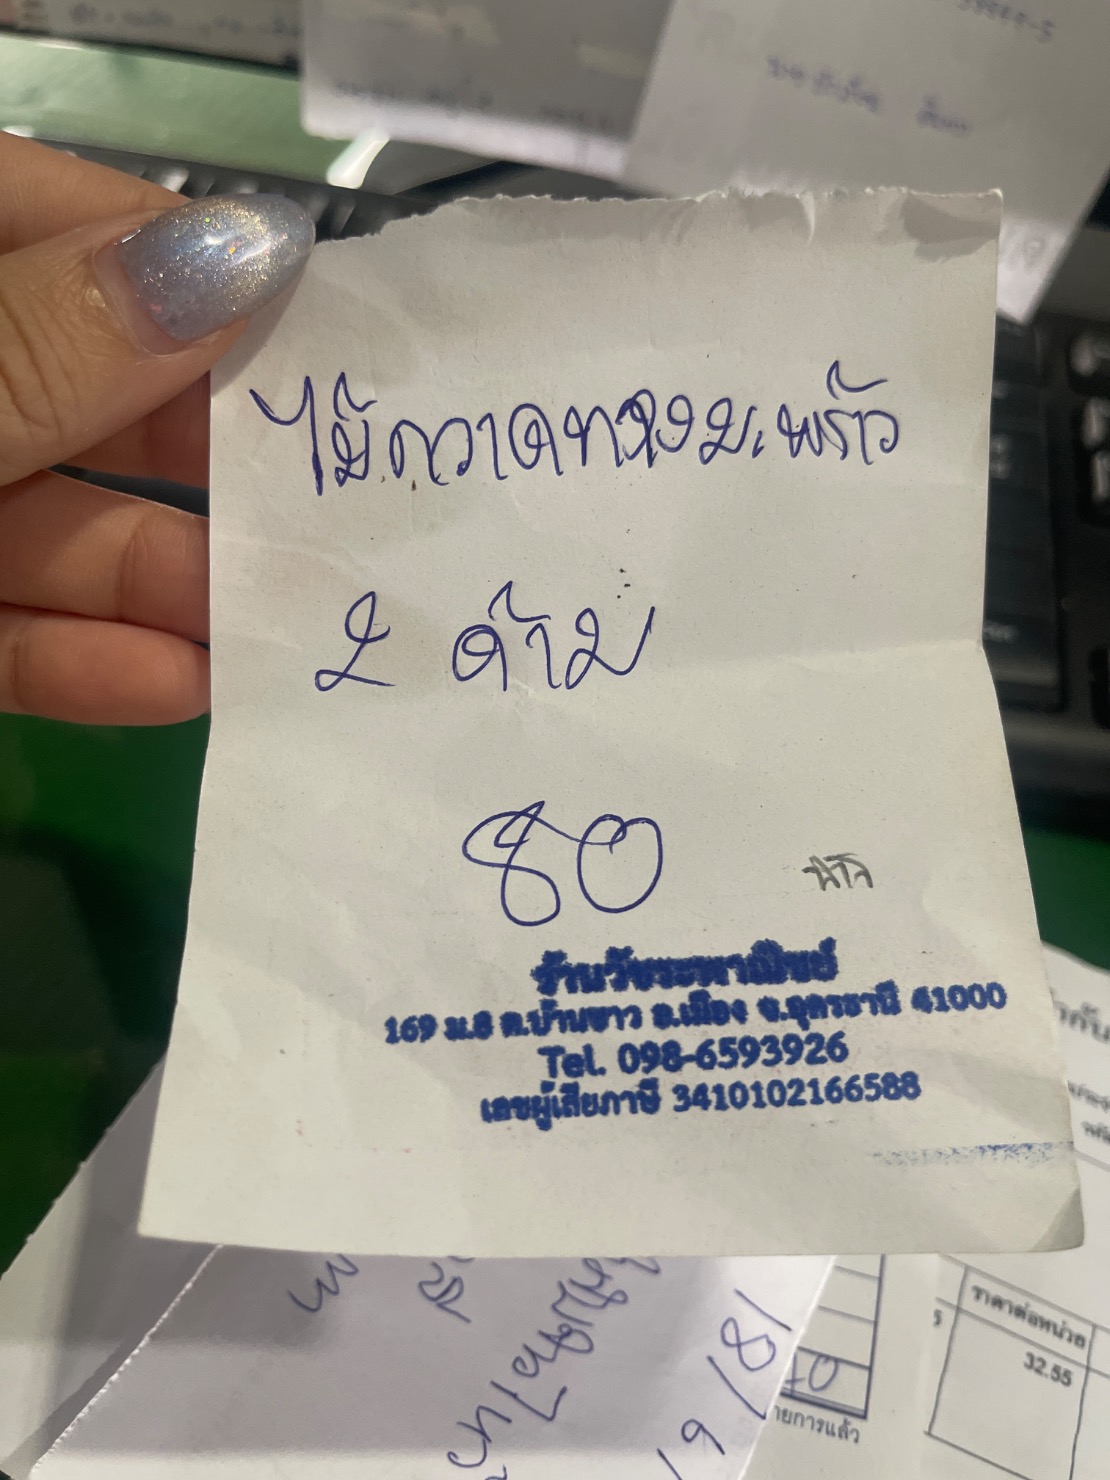 ไม้กวาดทางมะพร้าว
2 ด้าม
80
ร้านวัชระพาณิชย์
169 ม.8 ต.บ้านขาว อ.เมือง จ.อุดรธานี 41000
Tel. 098-6593926
เลขผู้เสียภาษี 3410102166588
ราคาต่อหน่วย
32.55
ายการแล้ว